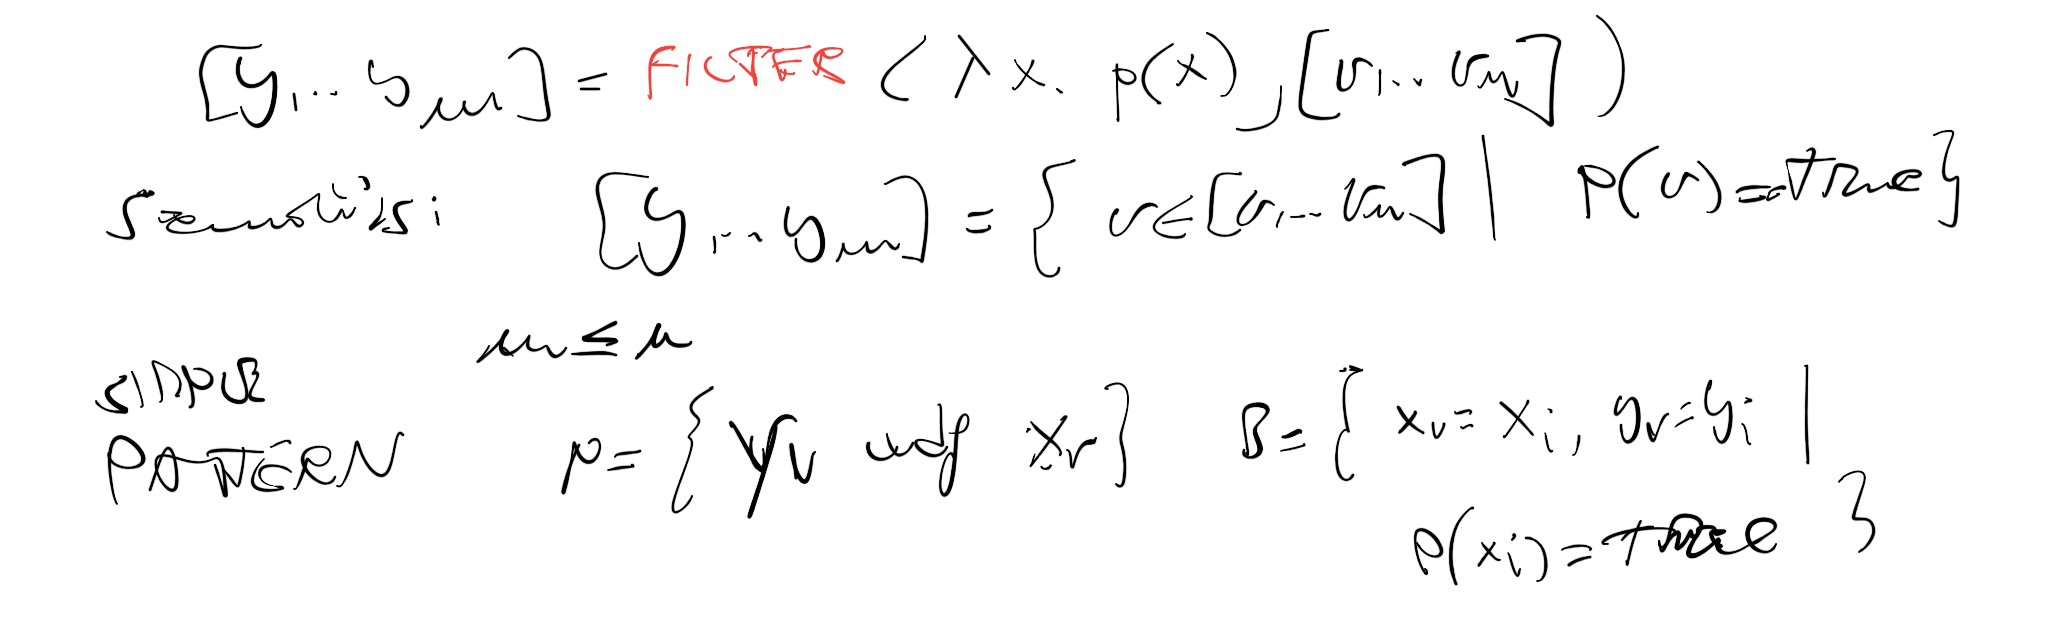 [y1... ym] = FILTER (λx. p(x), [v1.. vn])
[y1... ym] = { v∈[v1... vn] | p(v)=true}
m ≤ n
SIMPLE
PATTERN p = { yv wdf xv } B = { xv = xi, yv = yi |
p(xi) = true }